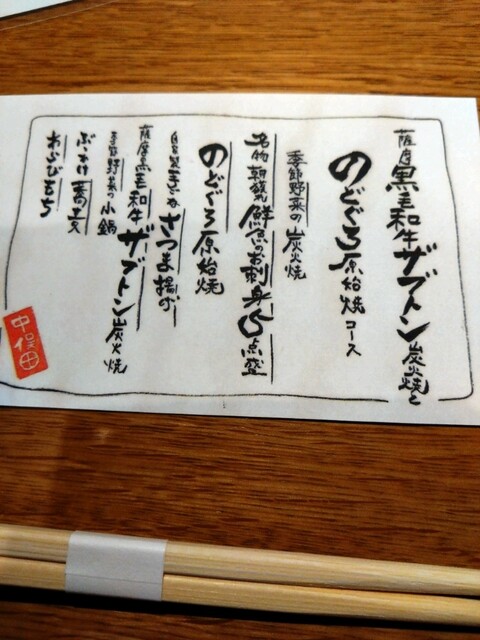 薩摩黒毛和牛ザブトン炭火焼と
のどぐろ原始焼コース
季節野菜の炭火焼
名物朝競鮮魚のお刺身心点盛
のどぐろ原始焼
自家製手ごねさつま揚げ
薩摩黒毛和牛ザブトン炭火焼
季節野菜の小鍋
ぶっかけ蕎麦
わらびもち
中俣田